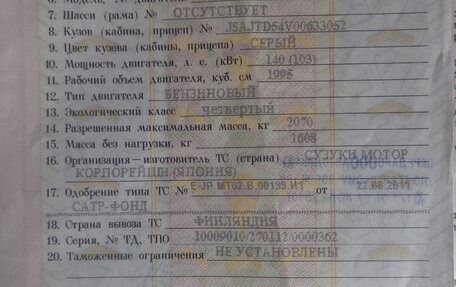 7. Шасси (рама) № ОТСУТСТВУЕТ
8. Кузов (кабина, прицеп) № JSAJTD54V00633052
9. Цвет кузова (кабины, прицепа) СЕРЫЙ
10. Мощность двигателя, л. с. (кВт) 140 (103)
11. Рабочий объем двигателя, куб. см 1995
12. Тип двигателя БЕНЗИНОВЫЙ
13. Экологический класс четвертый
14. Разрешенная максимальная масса, кг 2070
15. Масса без нагрузки, кг 1608
16. Организация — изготовитель ТС (страна) СУЗУКИ МОТОР
КОРПОРЕЙШН (ЯПОНИЯ)
17. Одобрение типа ТС № E-JP.MT02.B.00139.И1 от 22.06.2011
САТР-ФОНД
18. Страна вывоза ТС ФИНЛЯНДИЯ
19. Серия, № ТД, ТПО 10009010/270112/0000362
20. Таможенные ограничения НЕ УСТАНОВЛЕНЫ